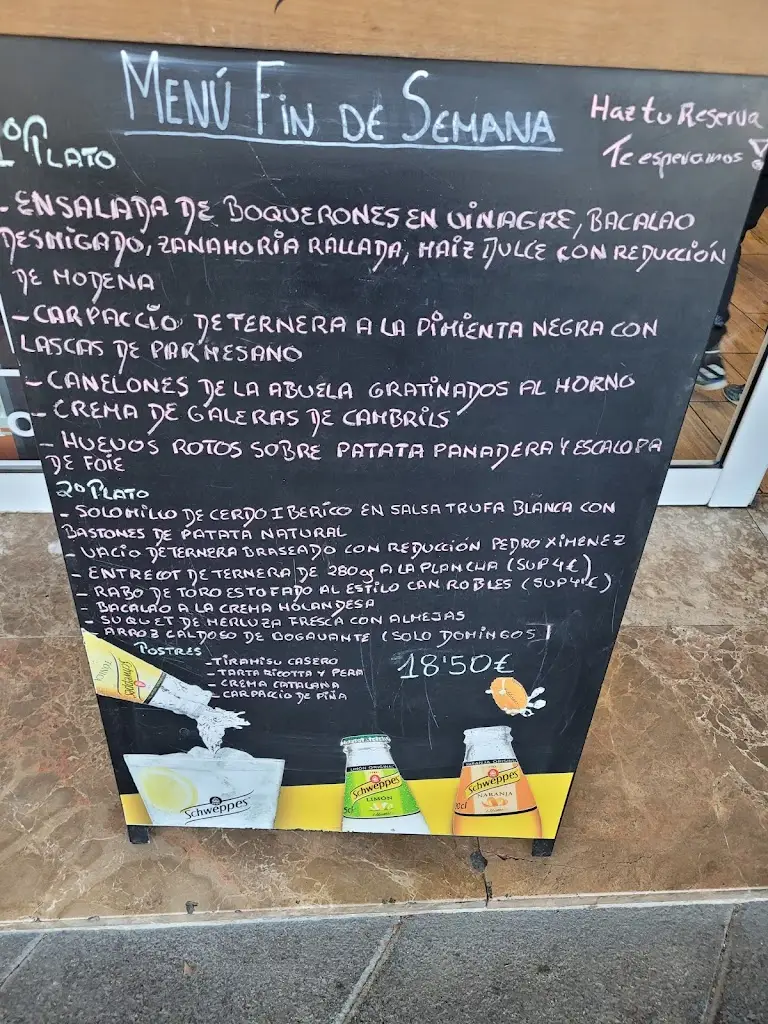 MENÚ FIN DE SEMANA
Haz tu Reserva
Te esperamos!
1º PLATO
- ENSALADA DE BOQUERONES EN VINAGRE, BACALAO
DESMIGADO, ZANAHORIA RALLADA, MAIZ DULCE CON REDUCCIÓN
DE MODENA
- CARPACCIO DE TERNERA A LA PIMIENTA NEGRA CON
LASCAS DE PARMESANO
- CANELONES DE LA ABUELA GRATINADOS AL HORNO
- CREMA DE GALERAS DE CAMBRILS
- HUEVOS ROTOS SOBRE PATATA PANADERA Y ESCALOPA
DE FOIE
2º PLATO
- SOLOMILLO DE CERDO IBERICO EN SALSA TRUFA BLANCA CON
BASTONES DE PATATA NATURAL
- VACIO DE TERNERA BRASEADO CON REDUCCIÓN PEDRO XIMENEZ
- ENTRECOT DE TERNERA DE 280gr A LA PLANCHA (SUP 4€)
- RABO DE TORO ESTOFADO AL ESTILO CAN ROBLES (SUP 4€)
- BACALAO A LA CREMA HOLANDESA
- SUQUET DE MERLUZA FRESCA CON ALMEJAS
- ARROZ CALDOSO DE BOGAVANTE (SOLO DOMINGOS)
POSTRES
- TIRAMISU CASERO
- TARTA RICOTTA Y PERA
- CREMA CATALANA
- CARPACCIO DE PIÑA
18'50€
Schweppes
TÓNICA
Schweppes
LIMÓN ORIGINAL
Schweppes
LIMÓN
NARANJA ORIGINAL
Schweppes
NARANJA